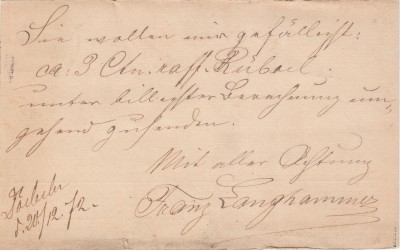 Sie wollen mir gefälligst:
ca: 3 Ctn: raff. Rüböel
unter billigster Berechnung um-
gehend zusenden.
Mit aller Achtung
Franz Langhammer
d. 20/12. 72.